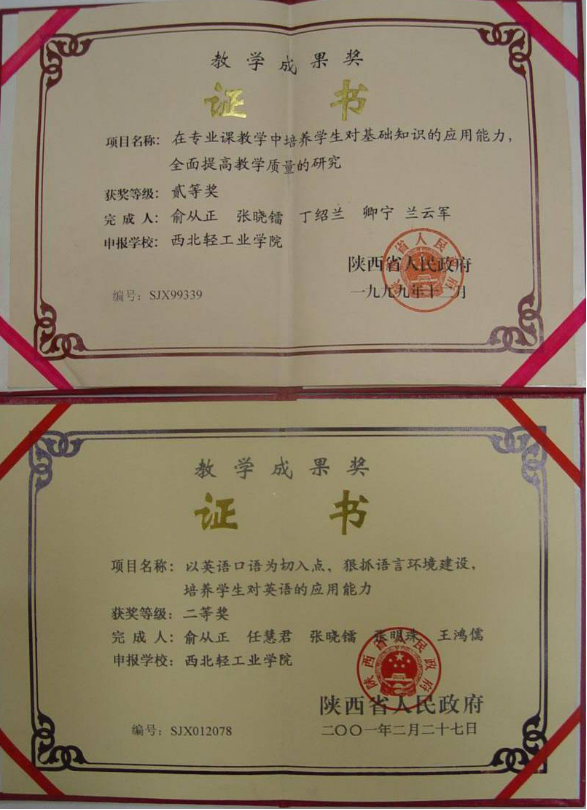 教学成果奖
证书
项目名称：在专业课教学中培养学生对基础知识的应用能力，
全面提高教学质量的研究
获奖等级：贰等奖
完成人：俞从正 张晓镭 丁绍兰 卿宁 兰云军
申报学校：西北轻工业学院
陕西省人民政府
编号：SJX99339
一九九九年十二月
教学成果奖
证书
项目名称：以英语口语为切入点，狠抓语言环境建设，
培养学生对英语的应用能力
获奖等级：二等奖
完成人：俞从正 任慧君 张晓镭 张明珠 王鸿儒
申报学校：西北轻工业学院
陕西省人民政府
陕西省人民政府
编号：SJX012078
二〇〇一年二月二十七日